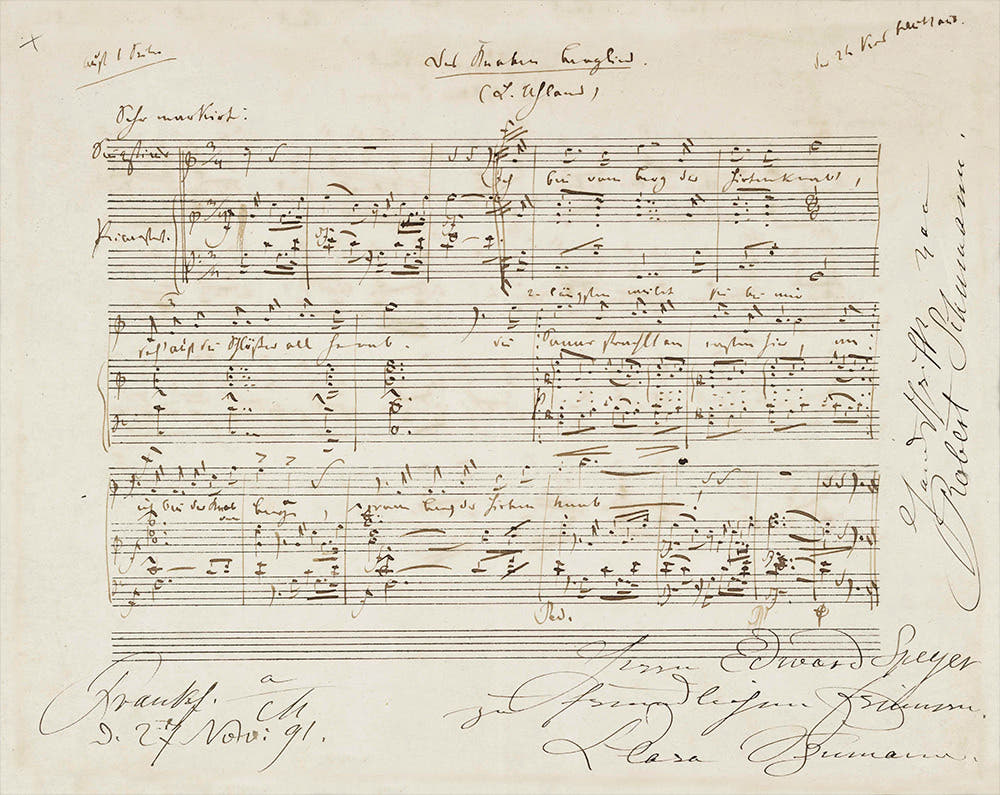 Des Knaben Berglied.
(L. Uhland)
Sehr markirt.
Singstimme
Ich bin vom Berg der Hirtenknab,
Pianoforte.
seh' auf die Schlösser all herab. die Sonne strahlt am ersten hier, am
längsten weilet sie bei mir
ich bin der Knab vom Berge, vom Berg der Hirtenknab
Ped.
Handschrift von
Robert Schumann.
Herrn Edward Speyer
zu freundlichem Erinnern.
Clara Schumann.
Frankf. a M
d. 27 Nov: 91.